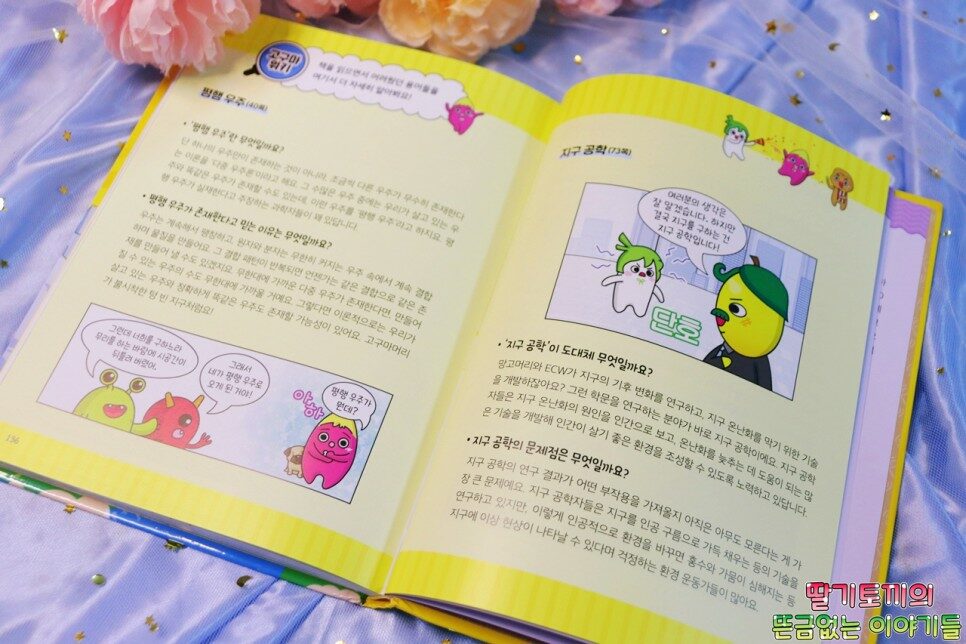 고구마
위키
책을 읽으면서 어려웠던 용어들을
여기서 더 자세히 알아봐요!
평행 우주(40쪽)
• '평행 우주'란 무엇일까요?
단 하나의 우주만이 존재하는 것이 아니라, 조금씩 다른 우주가 무수히 존재한다
는 이론을 '다중 우주론'이라고 해요. 그 수많은 우주 중에는 우리가 살고 있는 우
주와 똑같은 우주가 존재할 수도 있는데, 이런 우주를 '평행 우주'라고 하지요. 평
행 우주가 실재한다고 주장하는 과학자들이 꽤 있답니다.
• 평행 우주가 존재한다고 믿는 이유는 무엇일까요?
우주는 계속해서 팽창하고, 원자와 분자는 무한히 커지는 우주 속에서 계속 결합
하며 물질을 만들어요. 그 결합 패턴이 반복되면 언젠가는 같은 결합으로 같은 존
재를 만들어 낼 수도 있겠지요. 무한대에 가까운 다중 우주가 존재한다면, 만들어
질 수 있는 우주의 수도 무한대에 가까울 거예요. 그렇다면 이론적으로는 우리가
살고 있는 우주와 정확하게 똑같은 우주도 존재할 가능성이 있어요. 고구마머리
가 불시착한 텅 빈 지구처럼요!
그런데 너희를 구하느라
무리를 하는 바람에 시공간이
뒤틀려 버렸어.
그래서
네가 평행 우주로
오게 된 거야!
아하
평행 우주가
뭔데?
136
지구 공학(73쪽)
여러분의 생각은
잘 알겠습니다. 하지만
결국 지구를 구하는 건
지구 공학입니다!
단호
• '지구 공학'이 도대체 무엇일까요?
망고머리와 ECW가 지구의 기후 변화를 연구하고, 지구 온난화를 막기 위한 기술
을 개발하잖아요? 그런 학문을 연구하는 분야가 바로 지구 공학이에요. 지구 공학
자들은 지구 온난화의 원인을 인간으로 보고, 온난화를 늦추는 데 도움이 되는 많
은 기술을 개발해 인간이 살기 좋은 환경을 조성할 수 있도록 노력하고 있답니다.
• 지구 공학의 문제점은 무엇일까요?
지구 공학의 연구 결과가 어떤 부작용을 가져올지 아직은 아무도 모른다는 게 가
장 큰 문제예요. 지구 공학자들은 지구를 인공 구름으로 가득 채우는 등의 기술을
연구하고 있지만, 이렇게 인공적으로 환경을 바꾸면 홍수와 가뭄이 심해지는 등
지구에 이상 현상이 나타날 수 있다며 걱정하는 환경 운동가들이 많아요.
딸기토끼의
뜬금없는 이야기들